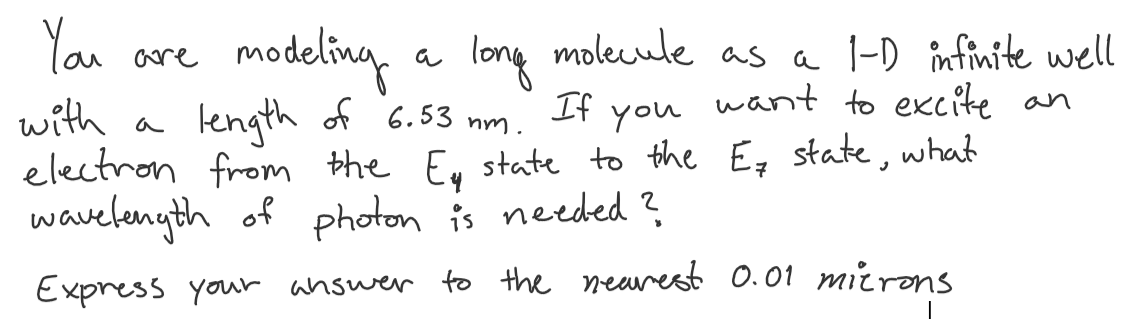 You are modeling a long molecule as a 1-D infinite well
with a length of 6.53 nm. If you want to excite an
electron from the E₄ state to the E₇ state, what
wavelength of photon is needed?
Express your answer to the nearest 0.01 microns